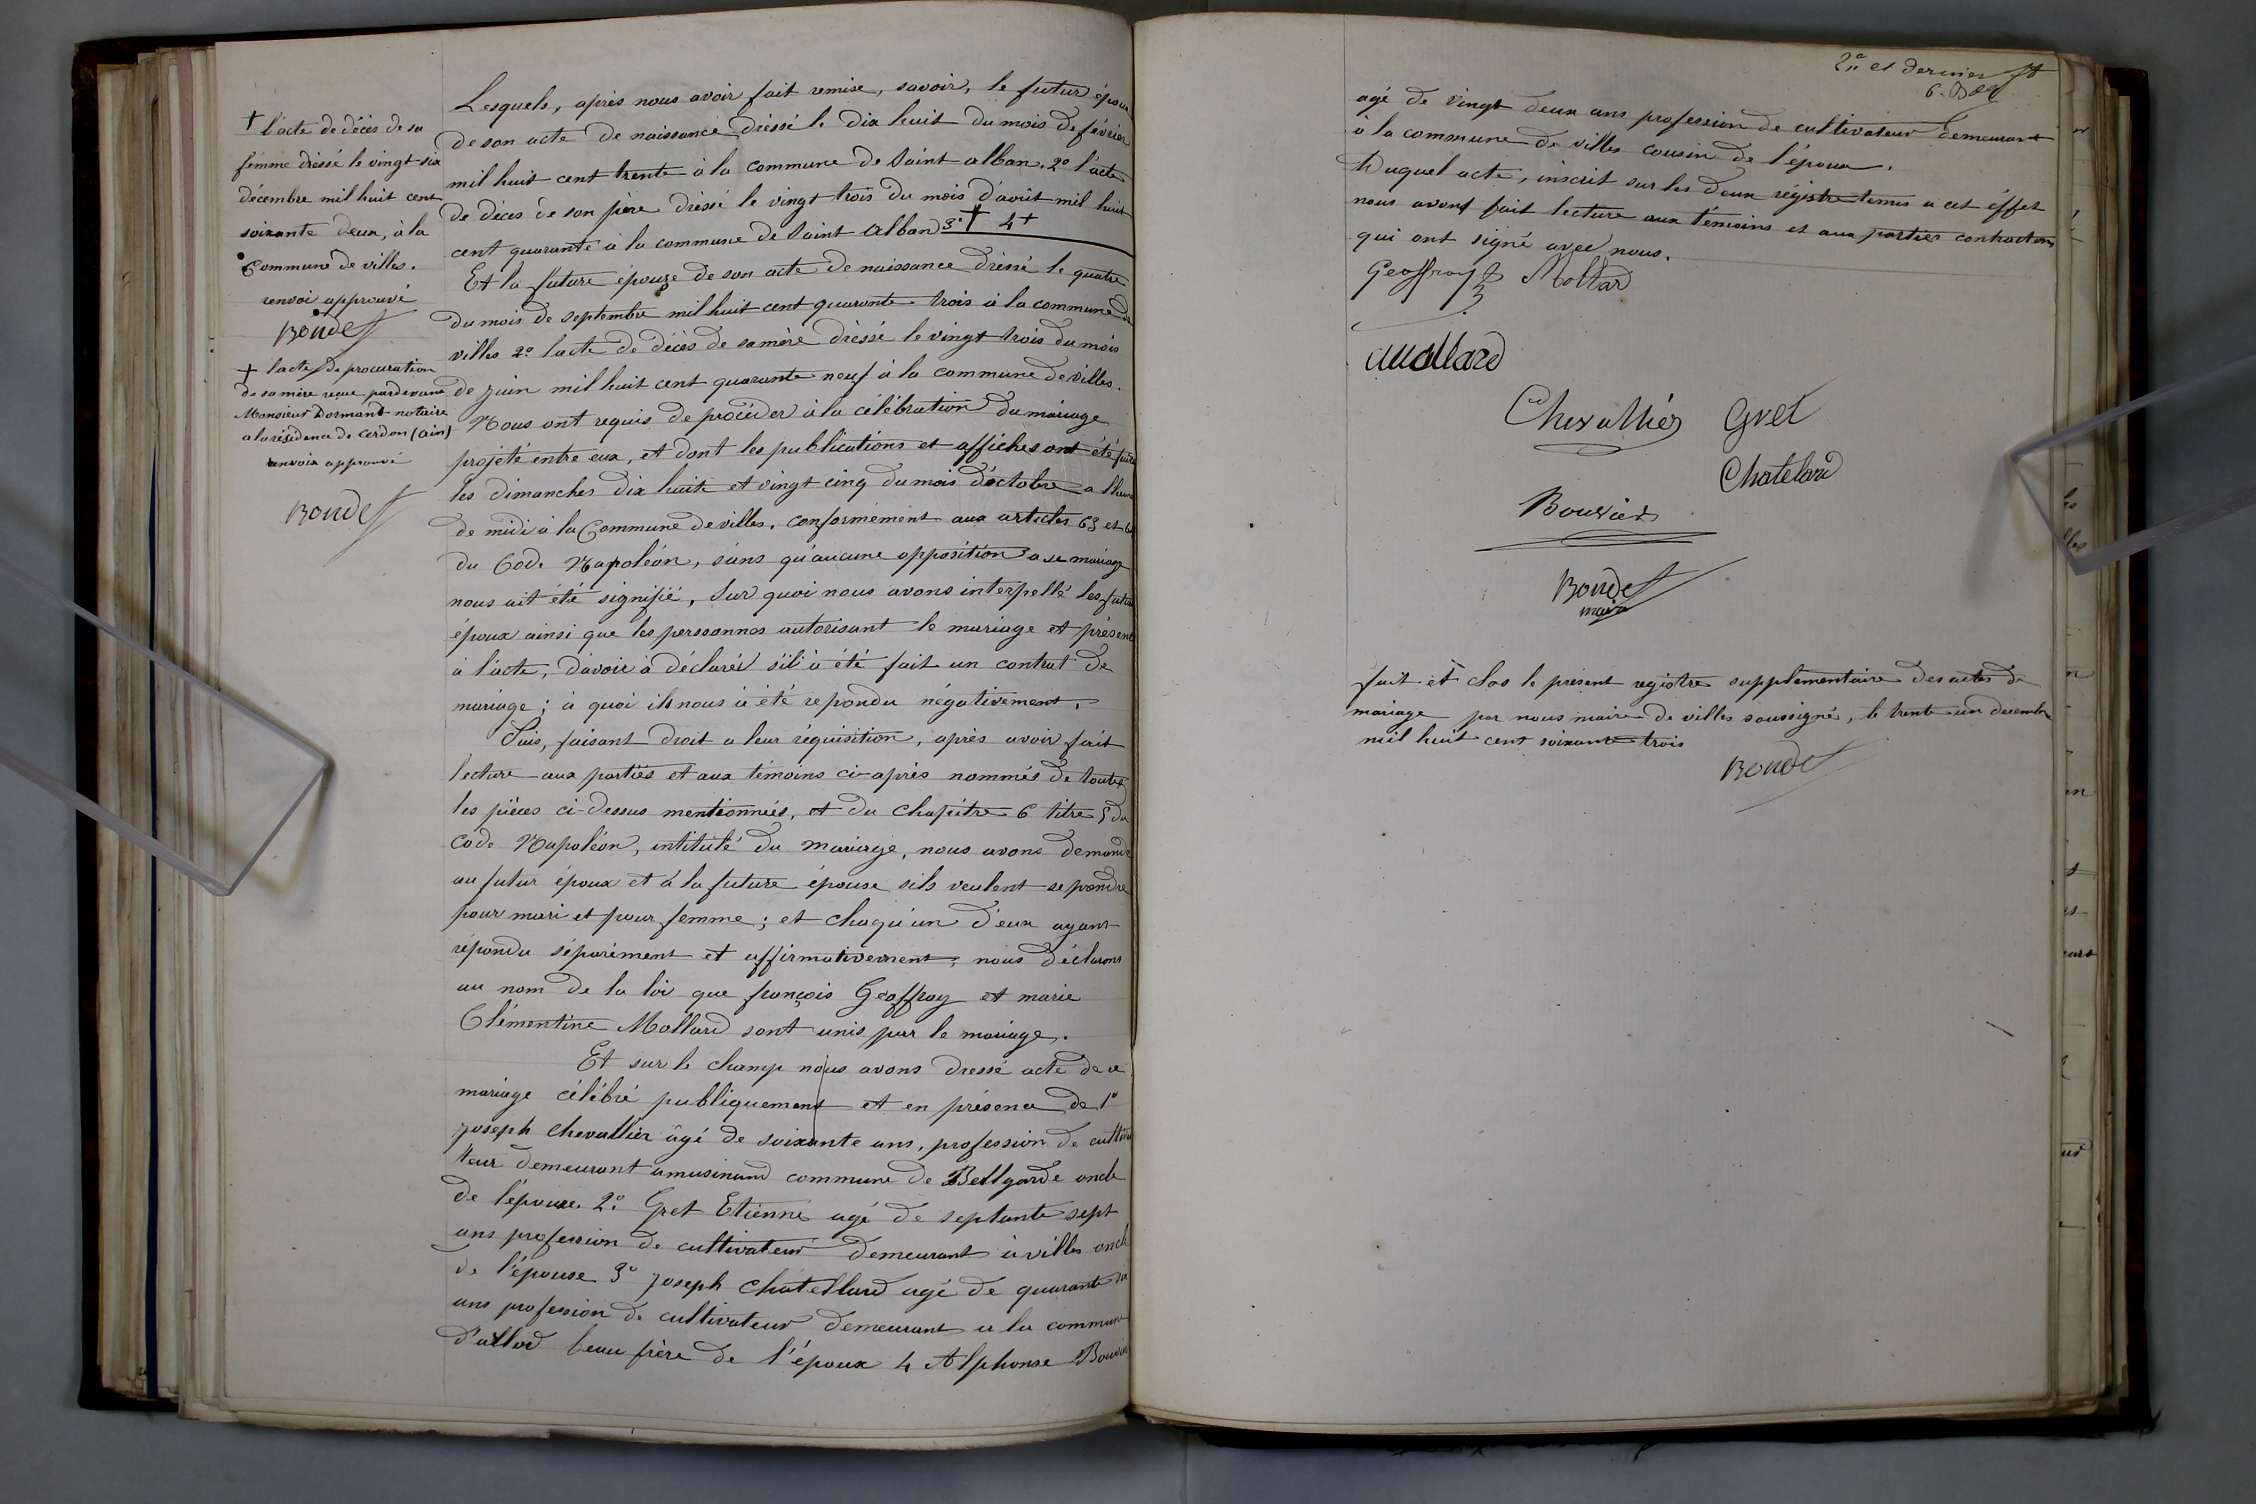 Lesquels, après nous avoir fait remise, savoir, le futur époux
de son acte de naissance dréssé le dix huit du mois de février
mil huit cent trente à la commune de Saint alban. 2º l'acte
de déces de son père dréssé le vingt trois du mois d'avût mil huit
cent quarante à la commune de Saint Alban 3º † 4 +
Et la future épouse de son acte de naissance dréssé le quatre
du mois de septembre mil huit cent quarante trois à la commune de
villes 2º l'acte de décès de sa mère dréssé le vingt trois du mois
de juin mil huit cent quarante neuf à la commune de villes.
Nous ont requis de procéder à la célébration du mariage
projété entre eux, et dont les publications et affiches ont été faites
les dimanches dix huit et vingt cinq du mois d'octobre a l'heure
de midi à la Commune de villes, conformément aux articles 63 et 64
du Code Napoléon, sans qu'aucune opposition a se mariage
nous ait été signifié, Sur quoi nous avons interpellé les futurs
époux ainsi que les perssonnes autorisant le mariage et présent
à l'acte, d'avoir à déclarér s'il à été fait un contrat de
mariage ; à quoi ils nous à été repondu négativement.
Puis, faisant droit a leur réquisition, après avoir fait
lecture aux partiés et aux témoins ci-après nommés de toutes
les pièces ci-dessus mentionnées, et du chapitre 6 titre 5 du
Code Napoléon, intitulé du mariage, nous avons demandé
au futur époux et à la future épouse sils veulent se prendre
pour mari et pour femme ; et chaqu'un d'eux ayant
répondu séparément et affirmativement ; nous déclarons
au nom de la loi que françois Geoffray et marie
Clémentine Mollard sont unis par le mariage.
Et sur le champ nous avons dressé acte de ce
mariage célébré publiquement et en présence de 1º
Joseph Chevallier âgé de soixante ans, profession de cultiva
teur demeurant a musinand commune de Bellgarde oncle
de l'épouse. 2º Gret Etienne agé de septante sept
ans profession de cultivateur demeurant à villes oncle
de l'épouse 3º Joseph Chatellard agé de quarante
ans profession de cultivateur demeurant a la commune
d'allod beau frère de l'époux 4 Alphonse Bouvier
† l'acte de décès de sa
femme dréssé le vingt-six
décembre mil huit cent
soixante deux, à la
Commune de villes.
renvoi approuvé
Bonde
+ l'acte de procuration
de sa mère reçue pardevant
Monsieur Dormand notaire
a la résidence de Cerdon (ain)
renvoix approuvé
Bonde
2e et dernier ft
agé de vingt deux ans profession de cultivateur demeurant
à la commune de villes cousin de l'époux.
Duquel acte, inscrit sur les deux régistre tenus a cet éffet
nous avons fait lecture aux témoins et aux parties contractans
qui ont signé avec nous.
Geoffray f Mollar
Mollard
Chevallier Gret
Chatelard
Bouvier
Bonde
maire
fait et clos le présent registre supplémentaire des actes de
mariage par nous maire de villes soussigné, le trente un decembre
mil huit cent soixante trois
Bonde